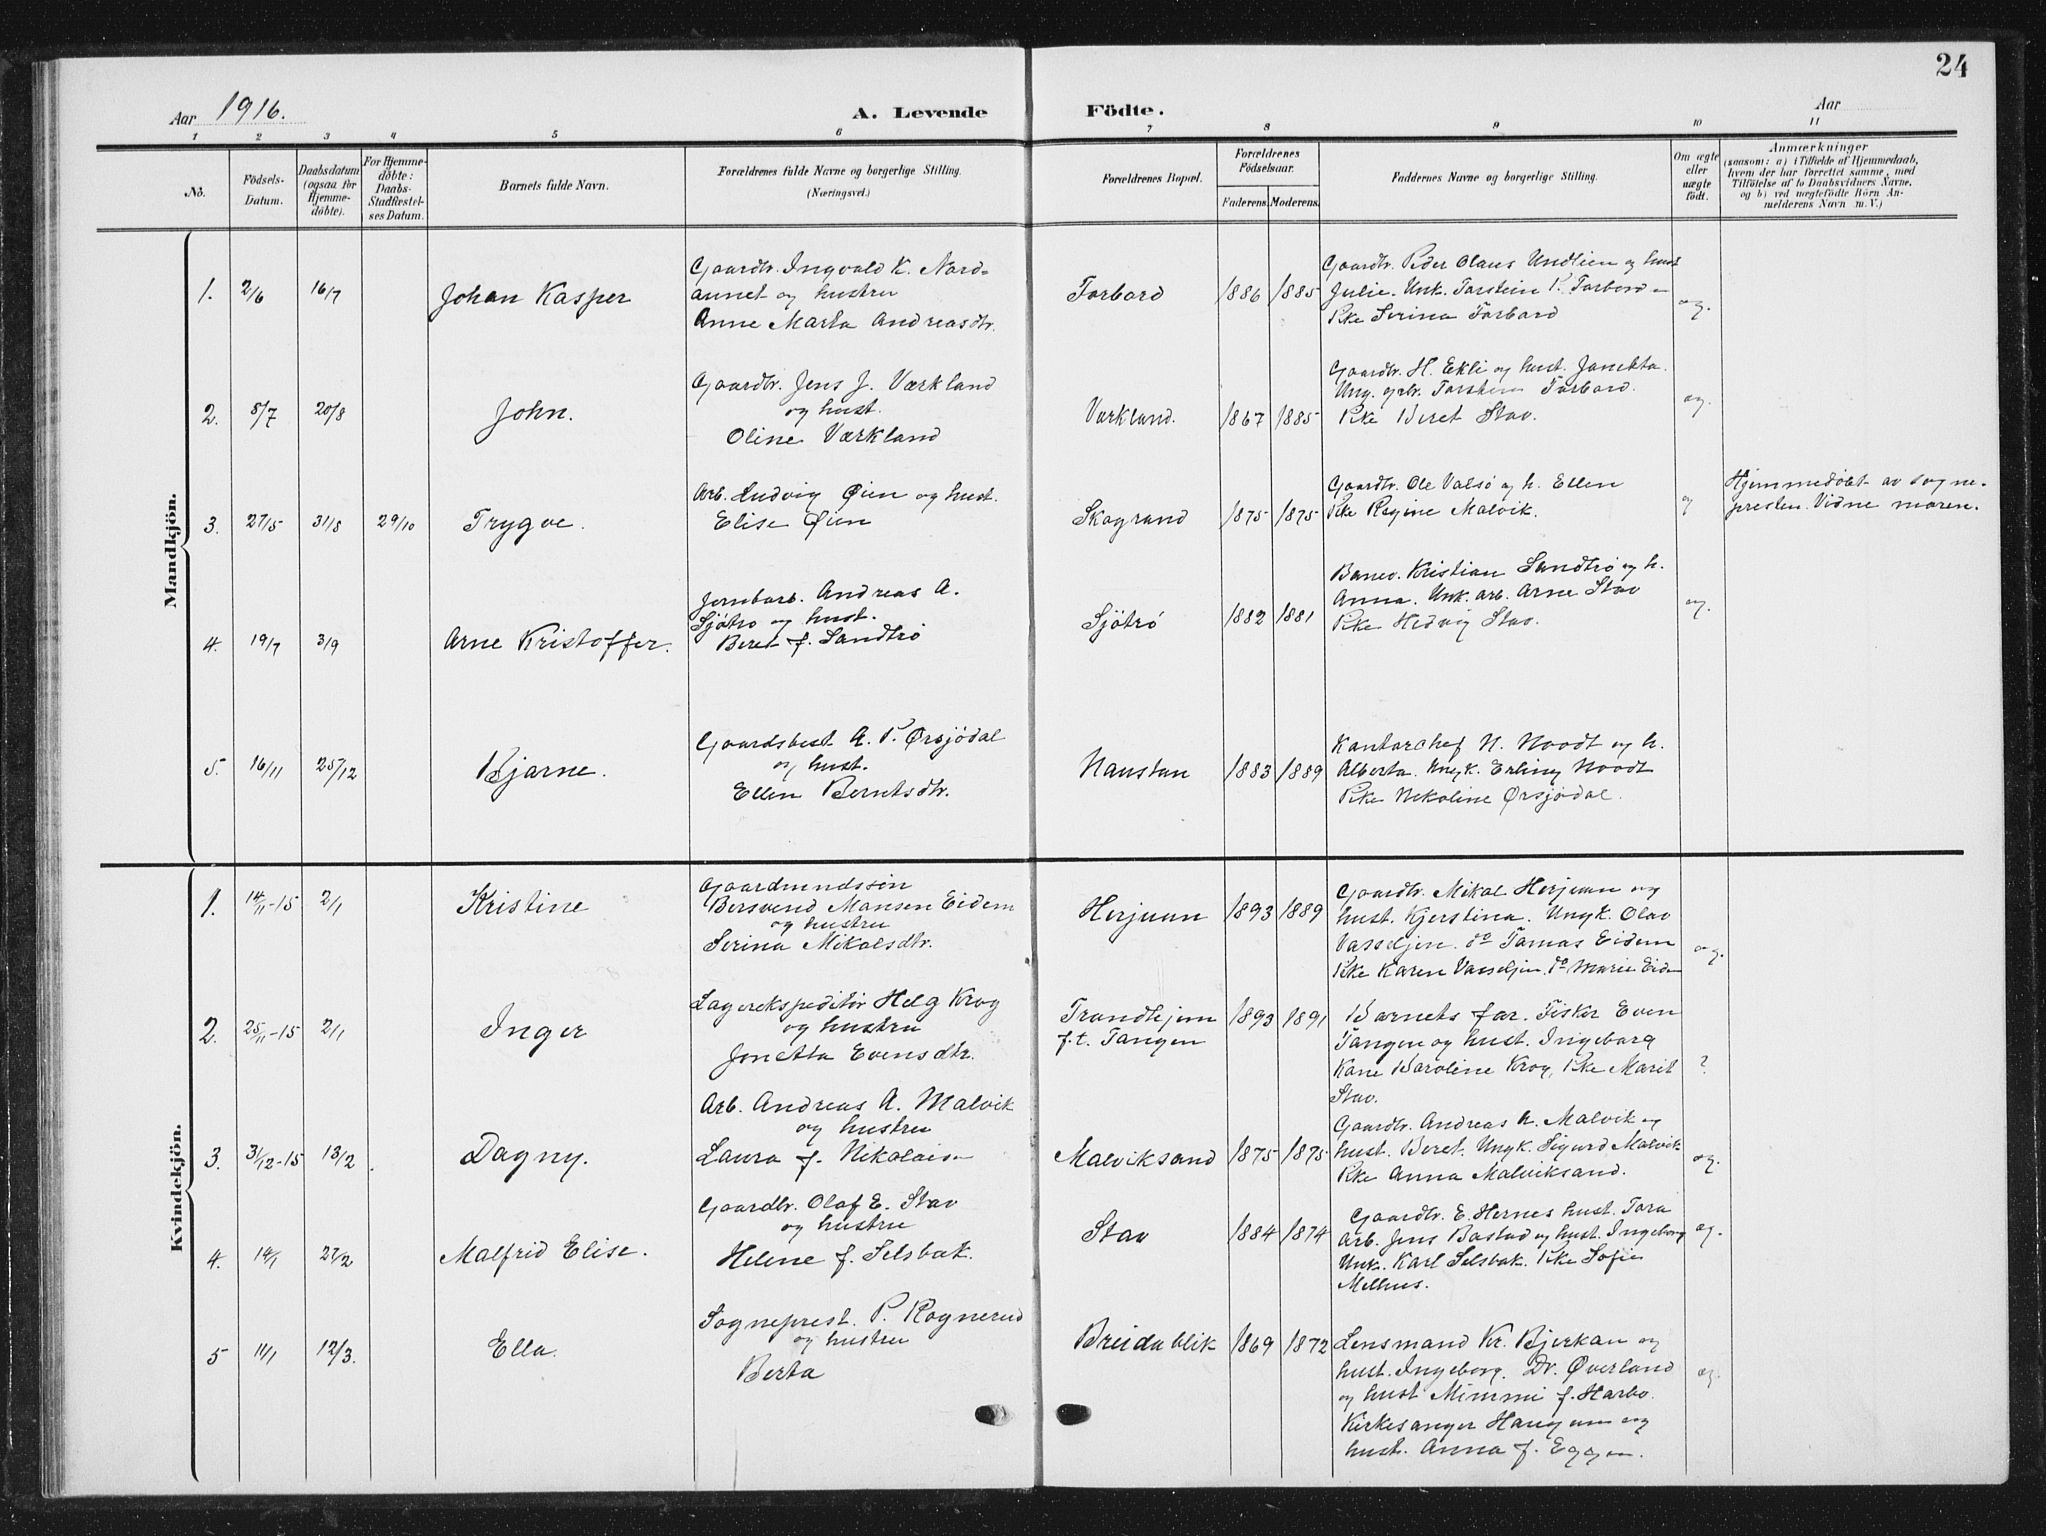 24
Aar 1916.
A. Levende Födte.
Aar
1 2 3 4 5 6 7 8 9 10 11
No.
Födsels-Datum.
Daabsdatum (ogsaa for Hjemme-døbte).
For Hjemme-døbte: Daabs-Stadfæstel-ses Datum.
Barnets fulde Navn.
Forældrenes fulde Navne og borgerlige Stilling.
(Næringsvei.)
Forældrenes Bopæl.
Forældrenes Födselsaar.
Faderens. Moderens.
Faddernes Navne og borgerlige Stilling.
Om ægte eller uægte født.
Anmærkninger
(saasom: a) i Tilfælde af Hjemmedaab,
hvem der har forrettet samme, med
Tilföielse af to Daabsvidners Navne,
og b) ved uegtefödte Börn An-
melderens Navn m. V.)
Mandkjön.
1. 2/6 16/7 Johan Kasper
Gaardbr. Ingvald K. Nord-
aunet og hustru
Anne Marta Andreasdtr.
Torbord 1886 1885
Gaardbr. Peder Olaus Undlien og hust
Julie. Unk. Torstein P. Torbord -
Pke Serina Torbord
eg.
2. 5/7 20/8 John.
Gaardbr. Jens J. Værkland
og hust.
Oline Værkland
Værkland. 1867 1885
Gaardbr. H. Ekli og hust. Janetta.
Ung. grbr. Torstein Torbord.
Pke Beret Stav.
eg.
3. 27/5 31/8 29/10 Trygve.
Arb. Ludvig Øien og hust.
Elise Øien
Skogrand 1875 1875
Gaardbr. Ole Valsö og h. Ellen
Pke Regine Malvik.
eg
Hjemmedöbt av sogne-
presten. Vidne moren.
4. 19/7 3/9 Arne Kristoffer.
Jernbarb. Andreas A.
Sjötrö og hust.
Beret f. Sandtrö
Sjötrö 1882 1881
Banev. Kristian Sandtrö og h.
Anna. Unk. arb. Arne Stav
Pke Hedvig Stav.
eg.
5. 16/11 25/12 Bjarne.
Gaardsbest. A. P. Ørsjödal
og hust.
Ellen Berntsdtr.
Naustan 1883 1889
Kontorchef N. Noodt og h.
Alberta. Ungk. Erling Noodt
Pke Nekoline Ørsjödal.
Kvindekjön.
1. 14/11-15 2/1 Kristine
Gaardmandssön
Bersvend Monsen Eidem
og hustru
Serina Mikalsdtr.
Herjuan 1893 1889
Gaardbr. Mikal Herjuan og
hust. Kjerstina. Ungk. Olav
Vasseljen. do Tomas Eidem
Pke Karen Vasseljen, do Marie Eidem
eg.
2. 25/11-15 2/1 Inger
Lagerekspeditör Helg Krog
og hustru
Jonetta Evensdtr.
Trondhjem
f.t. Tangen
1893 1891
Barnets far. Fisker Even
Tangen og hust. Ingeborg
Kone Karoline Krog, Pke Marit
Stav.
?
3. 31/12-15 13/2 Dagny.
Arb. Andreas A. Malvik
og hustru
Laura f. Nikolaisn
Malviksand 1875 1875
Gaardbr. Andreas A. Malvik og
hust. Beret. Ungk. Sigurd Malvik
Pke Anna Malviksand.
eg.
4. 14/1 27/2 Malfrid Elise.
Gaardbr. Olaf E. Stav
og hustru
Helene f. Selsbak.
Stav 1884 1874
Gaardbr. E. Hernes hust. Tora
Arb. Jens Bostad og hust. Ingeborg
Unk. Karl Selsbak. Pke Sofie
Melhus.
eg.
5 11/1 12/3. Ella.
Sogneprest. P. Rognerud
og hustru
Berta
Breidablik 1869 1872
Lensmand Kr. Bjerkan og
hust. Ingeborg. Dr. Øverland
og hust Mimmi f. Harbo.
Kirkesanger Haugum og
hust. Anna f. Eggen.
eg.